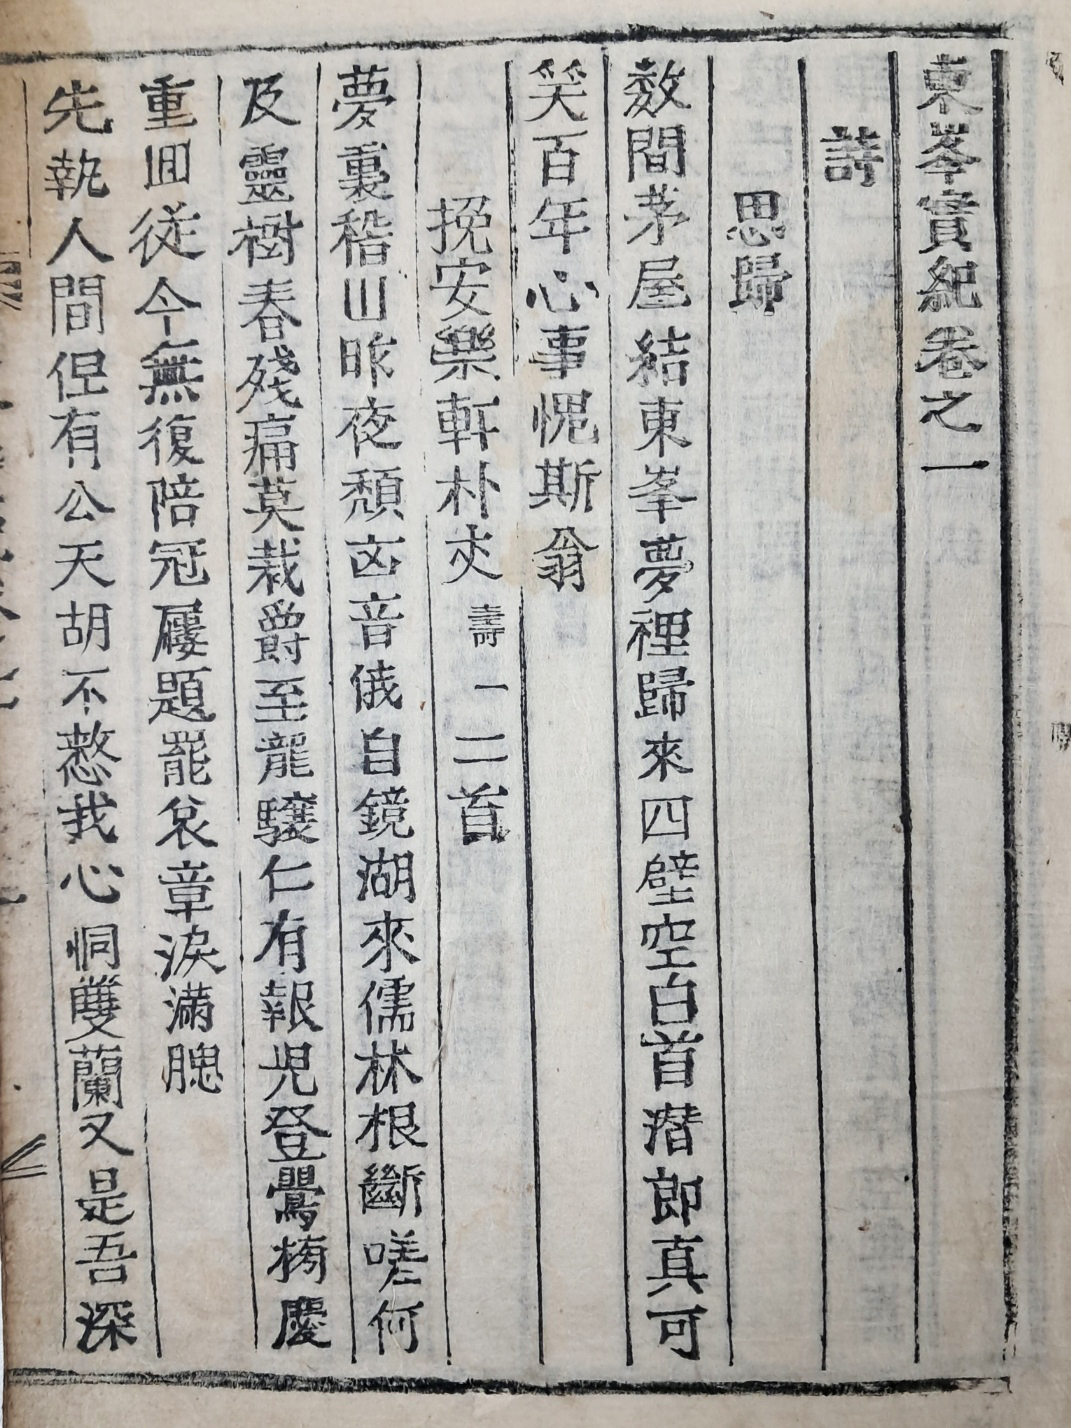 東峯實紀卷之一
詩
思歸
數間茅屋結東峯夢裡歸來四壁空白首潛郎真可
笑百年心事愧斯翁
挽安樂軒朴丈 壽一 二首
夢裏稽山昨夜頹凶音俄自鏡湖來儒林根斷嗟何
及靈樹春殘痛莫栽爵至龍驤仁有報兒登鸎榜慶
重回從今無復陪冠屨題罷哀章淚滿腮
先執人間但有公天胡不憖我心恫雙蘭又是吾深